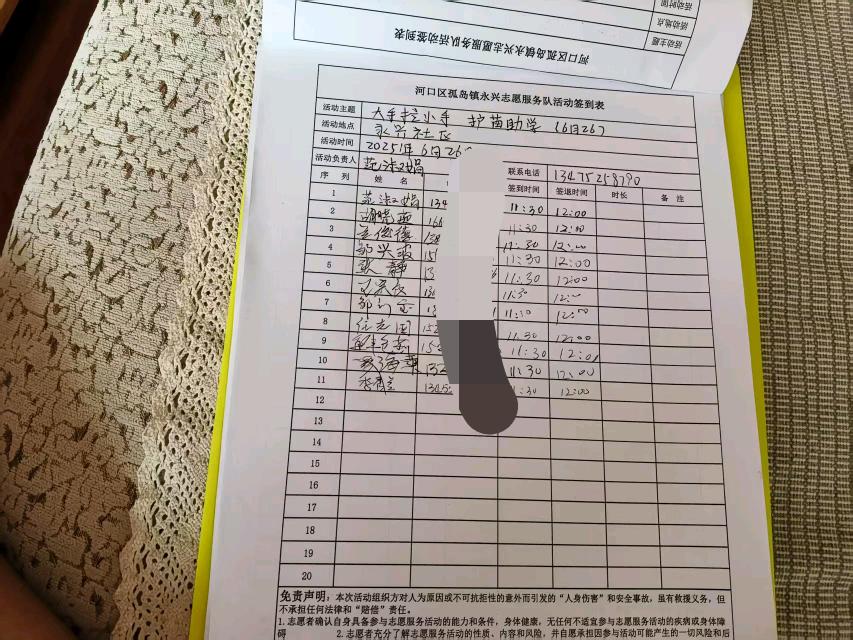 河口区孤岛镇永兴志愿服务队活动签到表
活动主题
活动地点
活动时间
河口区孤岛镇永兴志愿服务队活动签到表
活动主题 大手拉小手 护苗助学 (6月26)
活动地点 永兴社区
活动时间 2025年6月26
活动负责人 范淑娟 联系电话 13475258790
序 列 姓 名 签到时间 签退时间 时长 备 注
1 范淑娟 134 11:30 12:00
2 166 11:30 12:00
3 138 11:30 12:00
4 15 11:30 12:00
5 张静 11:30 12:00
6 11:30 12:00
7 11:30 12:00
8 任志国 15 11:30 12:00
9 15 11:30 12:00
10 132 11:30 12:00
11 1345 :30 12:00
12
13
14
15
16
17
18
19
20
免责声明：本次活动组织方对人为原因或不可抗拒性的意外而引发的“人身伤害”和安全事故，虽有救援义务，但
不承担任何法律和“赔偿”责任。
1. 志愿者确认自身具备参与志愿服务活动的能力和条件，身体健康，无任何不适宜参与志愿服务活动的疾病或身体障
碍 2. 志愿者充分了解志愿服务活动的性质、内容和风险，并自愿承担因参与活动可能产生的一切风险和后